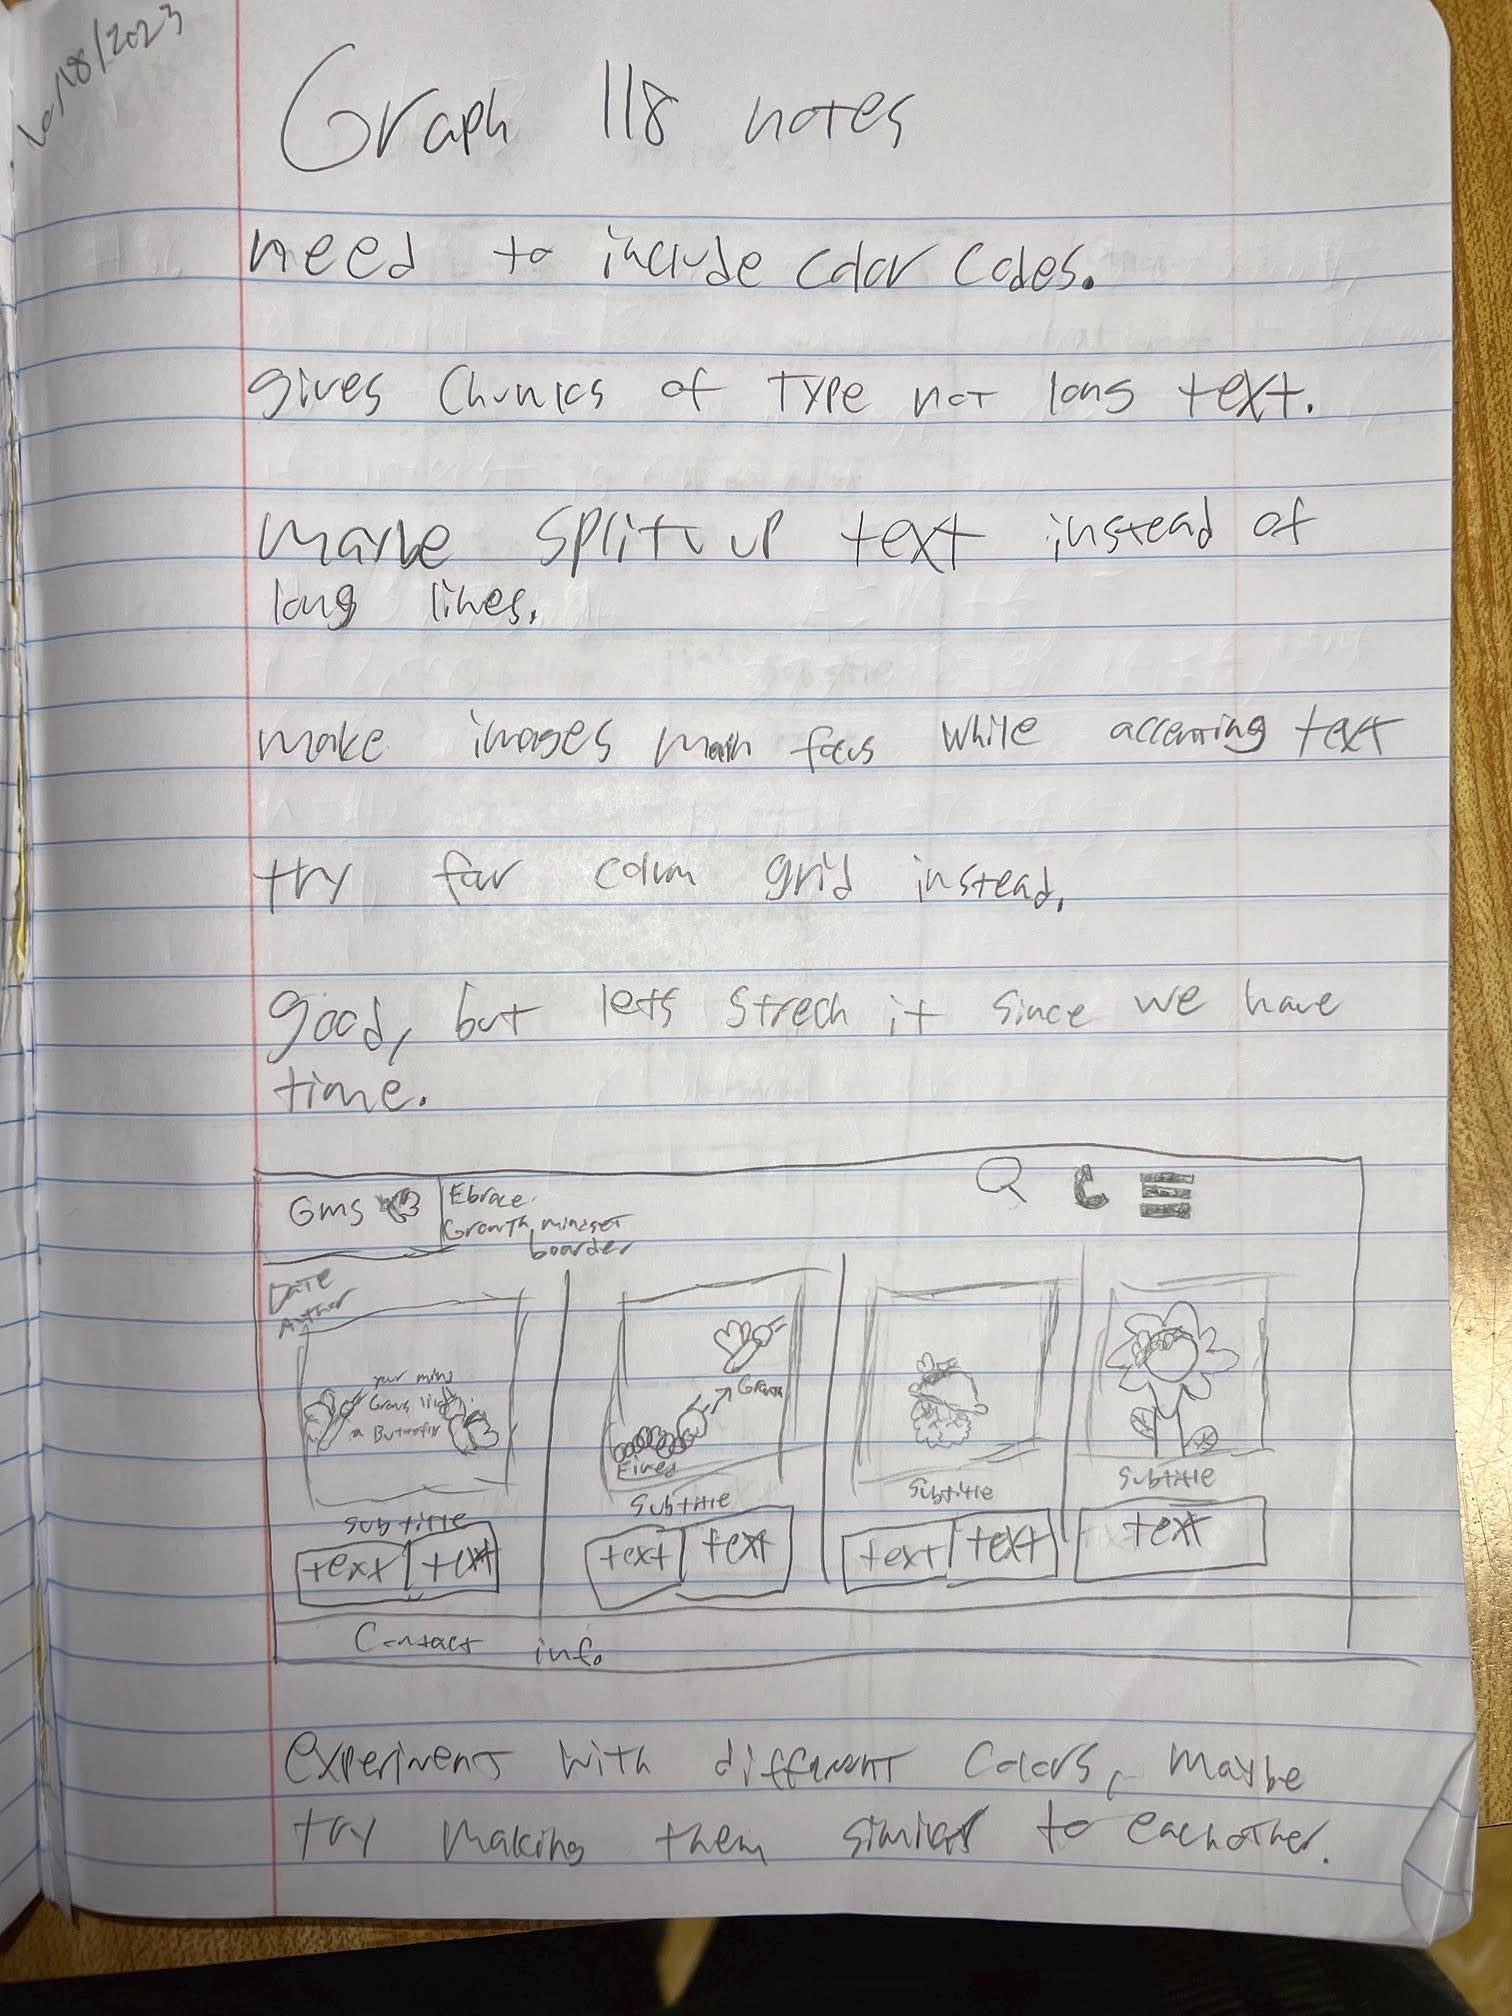 10/18/2023
Graph 118 notes
need to include color codes.
gives Chunks of Type not long text.
maybe split up text instead of
long lines.
make images main focus while accenting text
try four colum grid instead.
good, but lets strech it since we have
time.
Gms
Ebrace
Growth mindset
boarder
Date
Auther
your mind
Grows like
a Butterfly
Growth
Fixed
Subtitle
Subtitle
Subtitle
Subtitle
text text
text text
text text
text
Contact info
experiment with different colors, maybe
try making them similar to eachother.